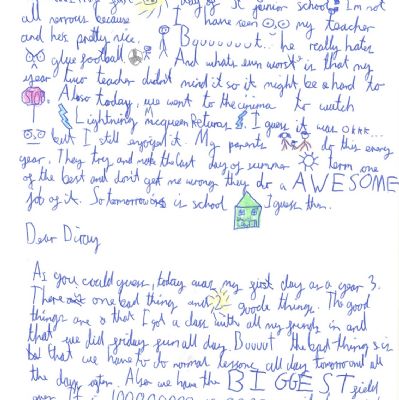 day of junior school I'm not
all nervous because I have seen my teacher
and he's pretty nice. Buuuuut... he really hates
glue football. And whats even worse is that my
year two teacher didn't mind it so it might be hard to
STOP. Also today, we went to the cinema to watch
Lightning Mcqueen Returns I guess it was okkk...
but I still enjoyed it. My parents do this every
year. They try and make the last day of summer term one
of the best and don't get me wrong they do a AWESOME
job of it. So tomorrow is school I guess then.
Dear Diray
As you could guess, today was my first day as a year 3.
There one bad thing and 2 goode things. The good
things are that I got a class with all my friends in and
that we did friday fun all day. Buuut the bad thing is
that we have to do normal lessons all day tomorrow and all
the days after. Also we have the BIGGEST field